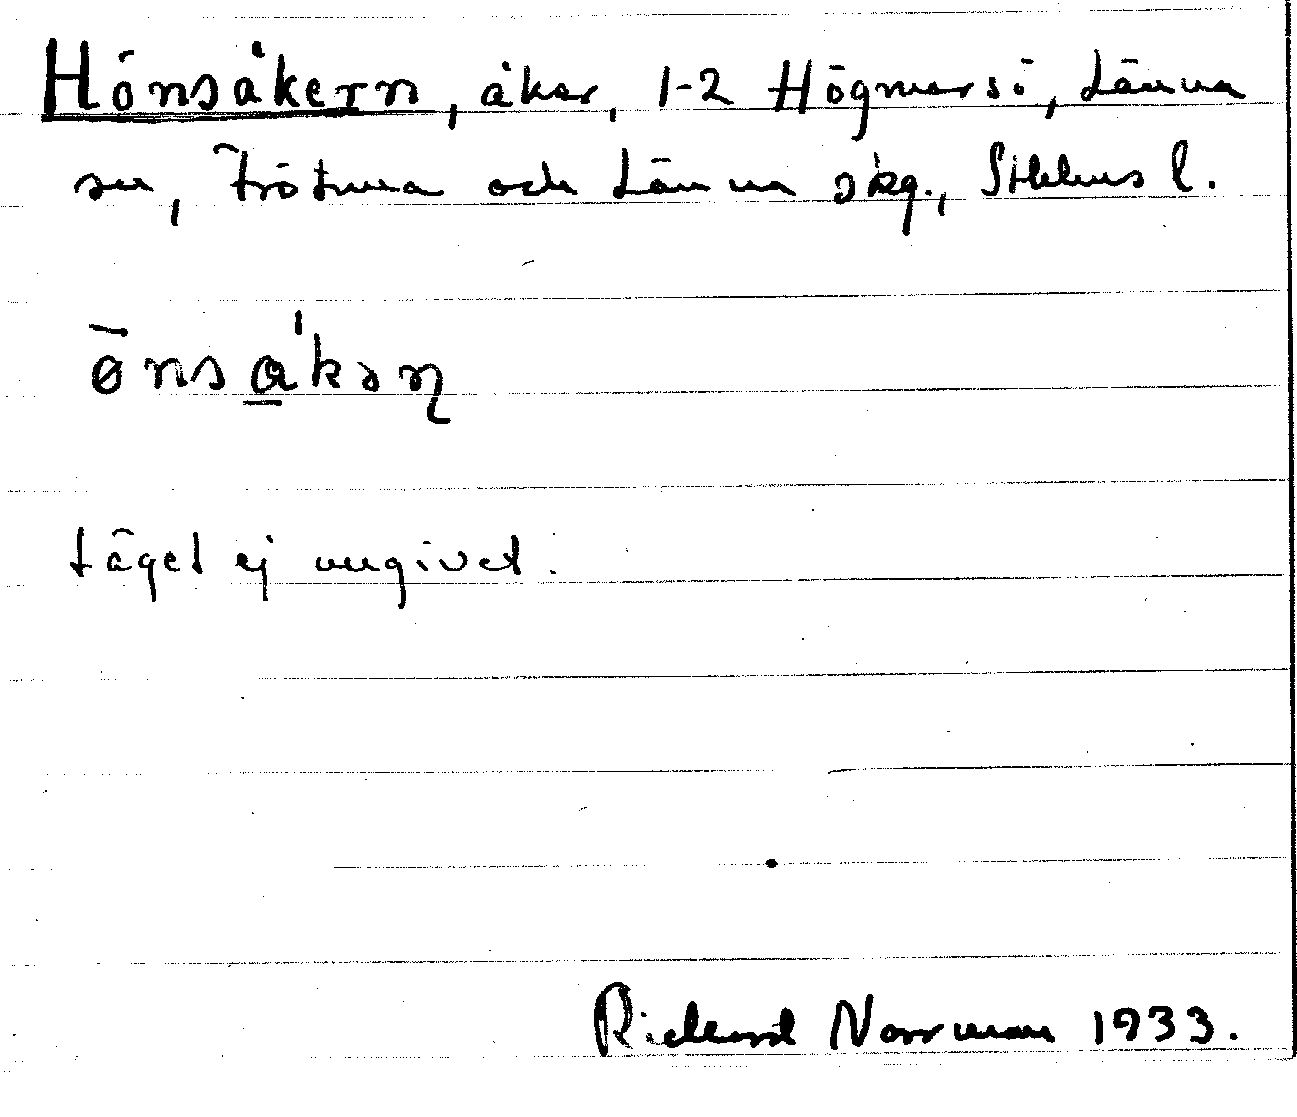 Hönsåkern, åker, 1-2 Högmarsö, Länna
sn, Frötuna och Länna skg., Sthlms l.
ø̄nsa̲̍kəɳ
Läget ej angivet.
Rickard Norrman 1933.